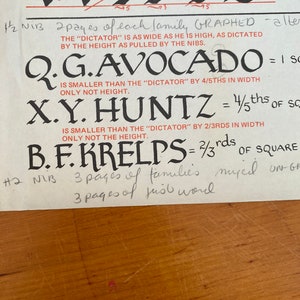 #2 NIB 2 pages of each family GRAPHED - alter
THE "DICTATOR" IS AS WIDE AS HE IS HIGH, AS DICTATED
BY THE HEIGHT AS PULLED BY THE NIBS.
Q.G.AVOCADO = 1 S
IS SMALLER THAN THE "DICTATOR" BY 4/5THS IN WIDTH
ONLY NOT HEIGHT.
X.Y.HUNTZ = 4/5ths OF SQ
IS SMALLER THAN THE "DICTATOR" BY 2/3RDS IN WIDTH
ONLY NOT THE HEIGHT.
B.F.KRELPS = 2/3rds OF SQUARE
#2 NIB 3 pages of families mixed
3 pages of just word